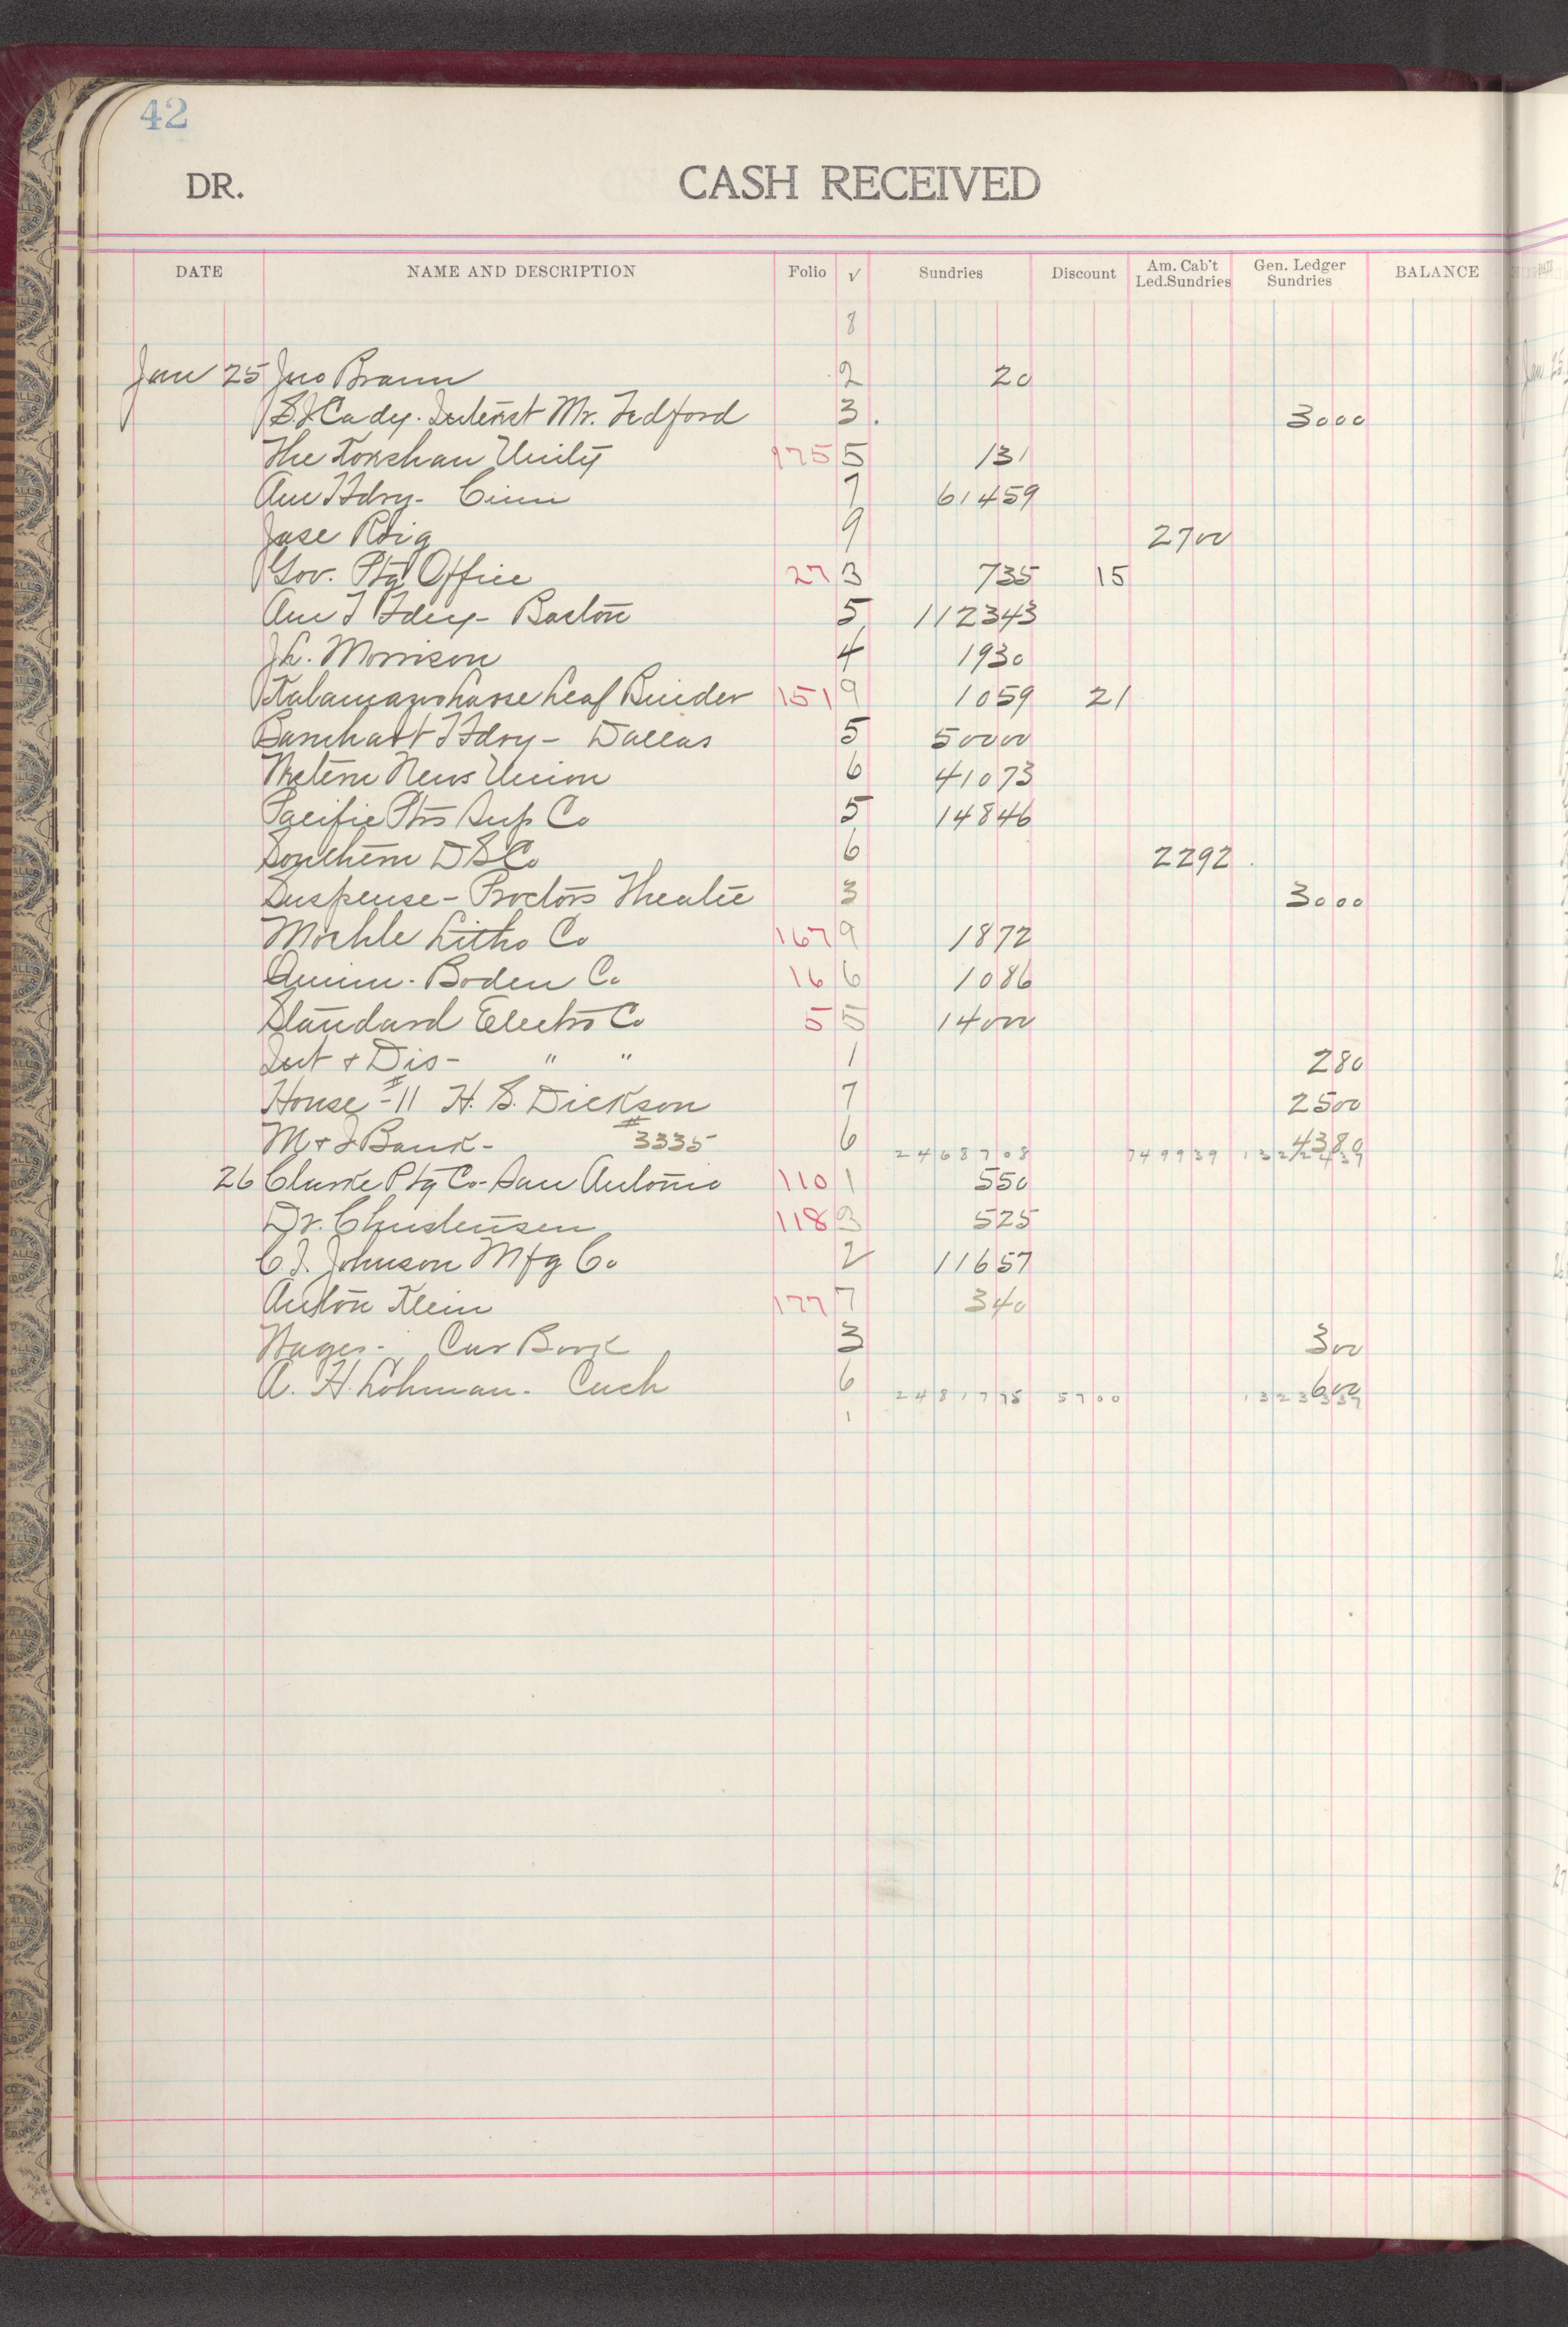 42
DR. CASH RECEIVED
DATE NAME AND DESCRIPTION Folio √ Sundries Discount Am. Cab't Led.Sundries Gen. Ledger Sundries BALANCE
8
Jan 25 Jno Braun 2 20
S.J. Cady. Interest Mr. Tedford 3. 3000
The Koreshan Unity 175 5 131
Am T Fdry- Cinn 7 61459
Jose Roig 9 2700
Gov. Ptg Office 27 3 735 15
Am T Fdry- Boston 5 112343
J.L. Morrison 4 1930
Kalamazoo Loose Leaf Binder 151 9 1059 21
Barnhart T Fdry- Dallas 5 50000
Western News Union 6 41073
Pacific Ptrs Sup Co 5 14846
Southern D S Co 6 2292
Suspense- Proctors Theatre 3 3000
Moehle Litho Co 167 9 1872
Quinn-Boden Co 16 6 1086
Standard Electro Co 5 5 14000
Int & Dis- " " 1 280
House-#11 H. S. Dickson 7 2500
M & I Bank- #3335 6 4380
2468708 749939
26 Clarke Ptg Co-San Antonio 110 1 550
Dr. Christensen 118 3 525
C.J. Johnson Mfg Co 2 11657
Anton Klein 177 7 340
Wages- Car Book 3 300
A. H. Lohman- Cash 6 600
2481775 5700 1323337
1